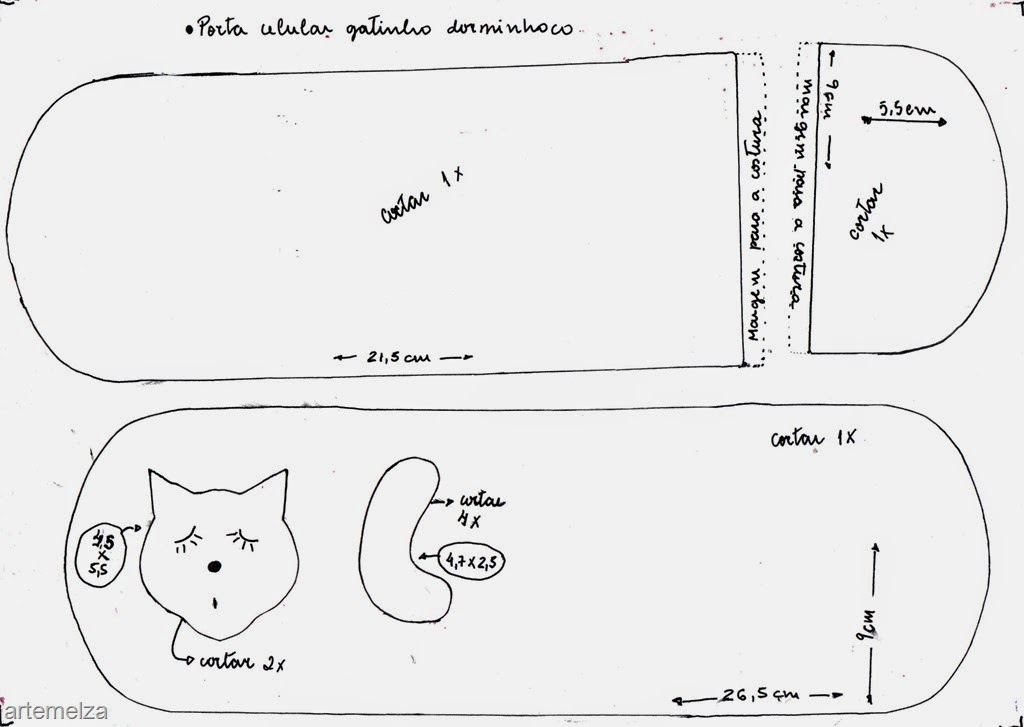 • Porta celular gatinho dorminhoco
cortar 1x
21,5 cm
Margem para a costura
margem para a costura
9 cm
5,5 cm
cortar
1x
cortar 1x
4,5
x
5,5
cortar
4x
4,7 x 2,5
cortar 2x
9 cm
26,5 cm
artemelza